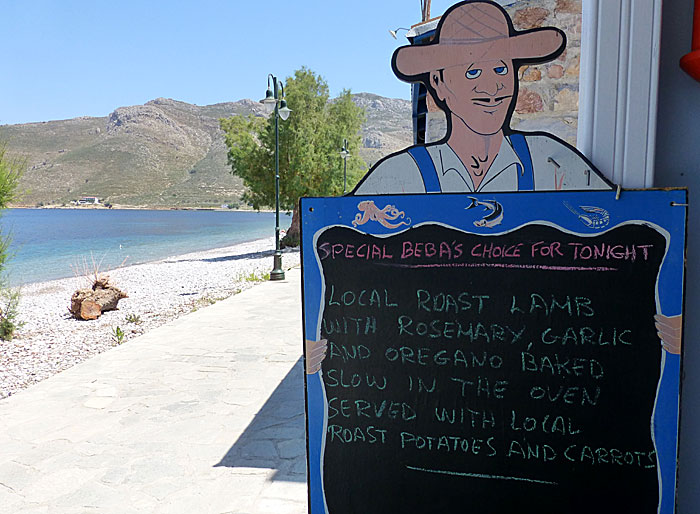 SPECIAL BEBA'S CHOICE FOR TONIGHT
LOCAL ROAST LAMB
WITH ROSEMARY, GARLIC
AND OREGANO BAKED
SLOW IN THE OVEN
SERVED WITH LOCAL
ROAST POTATOES AND CARROTS